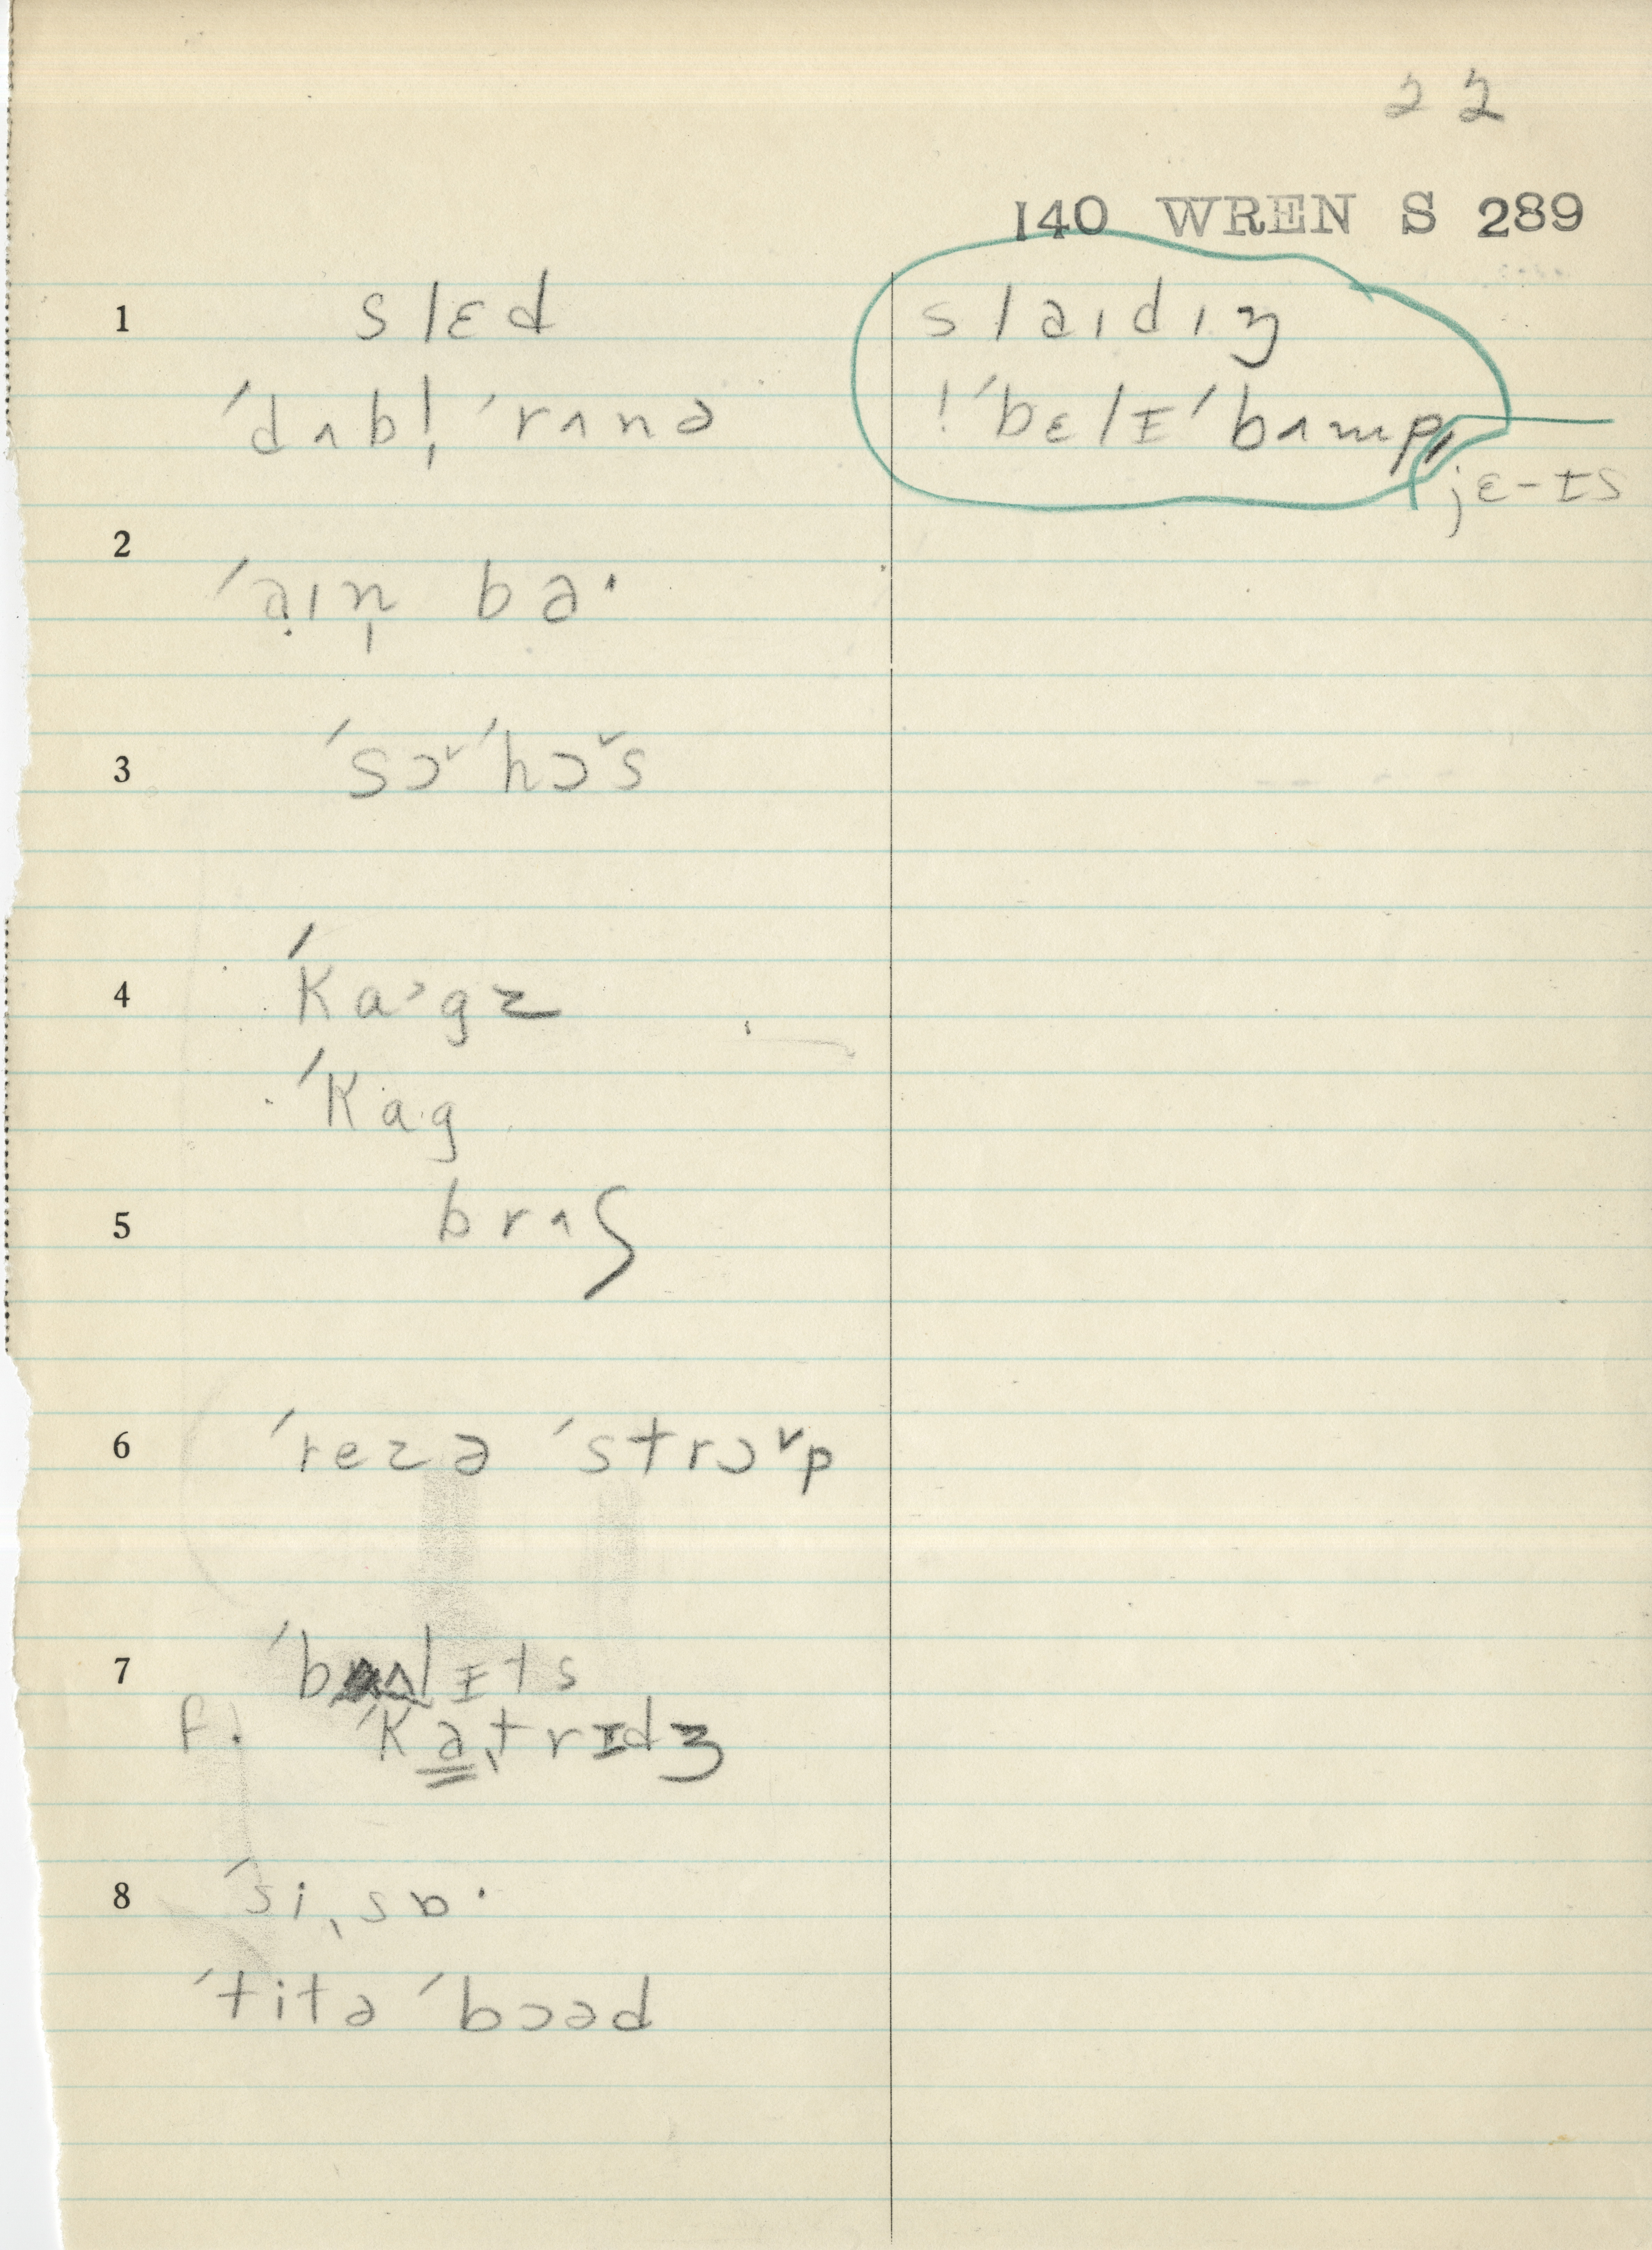 22
140 WREN S 289
1 slɛd
ˈdʌbl̩ ˈrʌnə
slaɪdɪŋ
! ˈbɛlɪˈbʌmp,
jɛ-ɪs
2 ˈaɪn̩ bə·
3 ˈsɔ˅ˈhɔ˅s
4 ˈka˃gz
ˈkag
5 brʌʃ
6 ˈrezə ˈstrɔ˅p
7 ˈbʌlɪts
f. ˈkatrɪdʒ
8 ˈsiˌsɒ·
ˈtitə ˈbɔəd